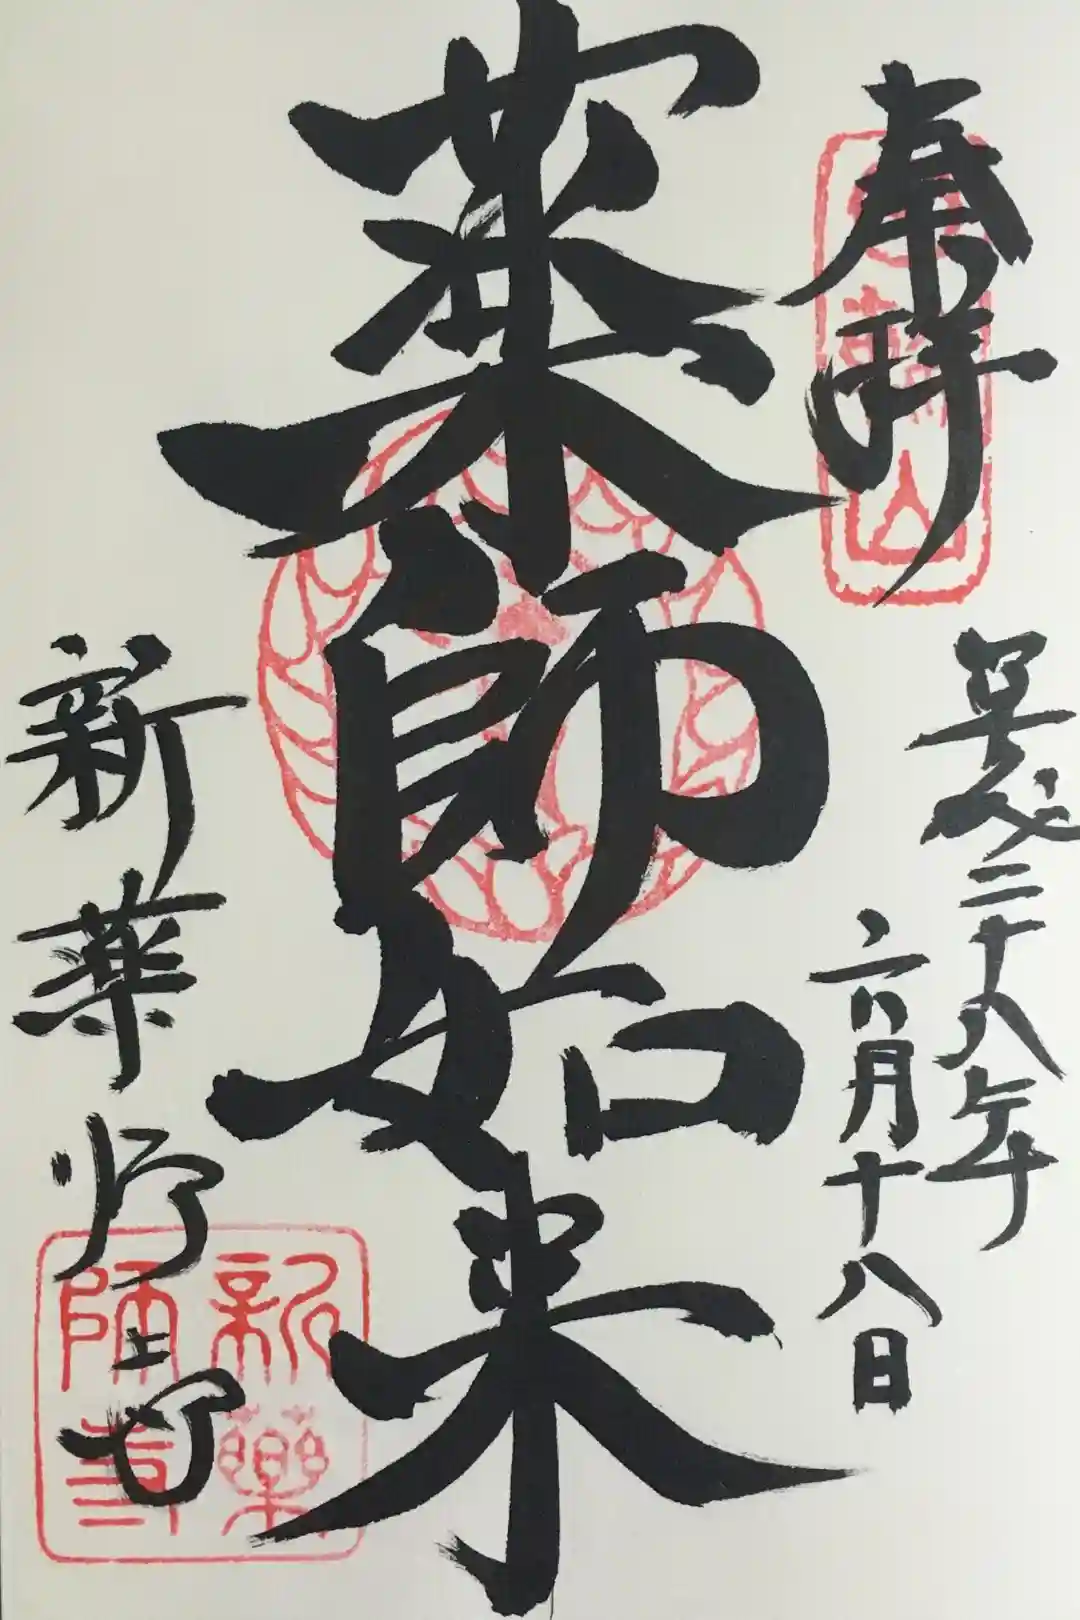 奉拝
平成二十八年
六月十八日
薬師如来
新薬師寺
新薬師寺